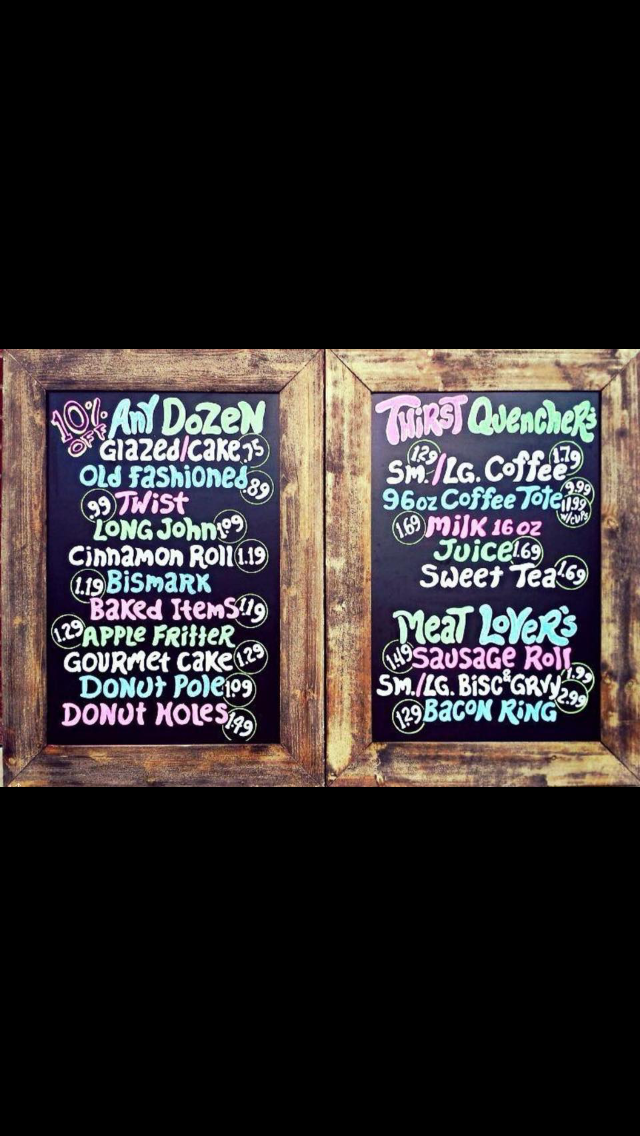 10% OFF Any Dozen
Glazed/Cake .75
Old Fashioned .89
.99 Twist
Long John 1.09
Cinnamon Roll 1.19
1.19 Bismark
Baked Items 1.19
1.29 Apple Fritter
Gourmet Cake 1.29
Donut Pole 1.09
Donut Holes 1.49
Thirst Quencher's
1.29 1.79
Sm./Lg. Coffee
96oz Coffee Tote 9.99
11.99 w/cups
1.69 Milk 16 oz
Juice 1.69
Sweet Tea 1.69
Meat Lover's
1.49 Sausage Roll
Sm./Lg. Bisc & Grvy 1.99
2.99
1.29 Bacon Ring